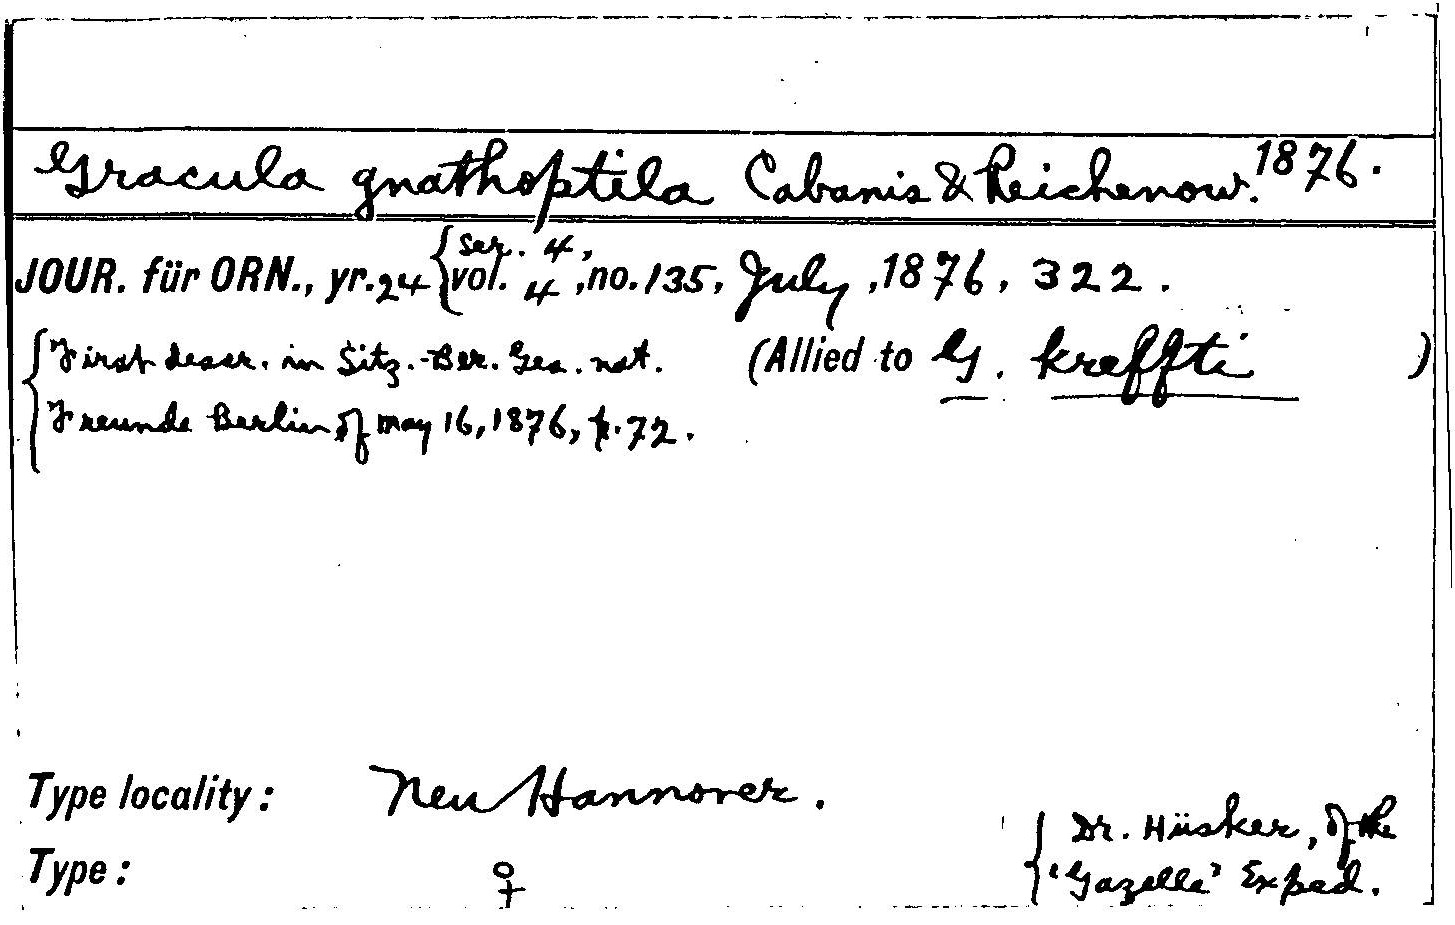 Gracula gnathoptila Cabanis & Reichenow. 1876.
JOUR. für ORN., yr. 24 { ser. 4, vol. 4, no. 135, July, 1876, 322.
{ First descr. in Sitz.-Ber. Ges. nat. (Allied to G. kreffti )
Freunde Berlin of May 16, 1876, p. 72.
Type locality: Neu Hannover.
{ Dr. Hüsker, of the
Type: ♀ 'Gazelle' Exped.